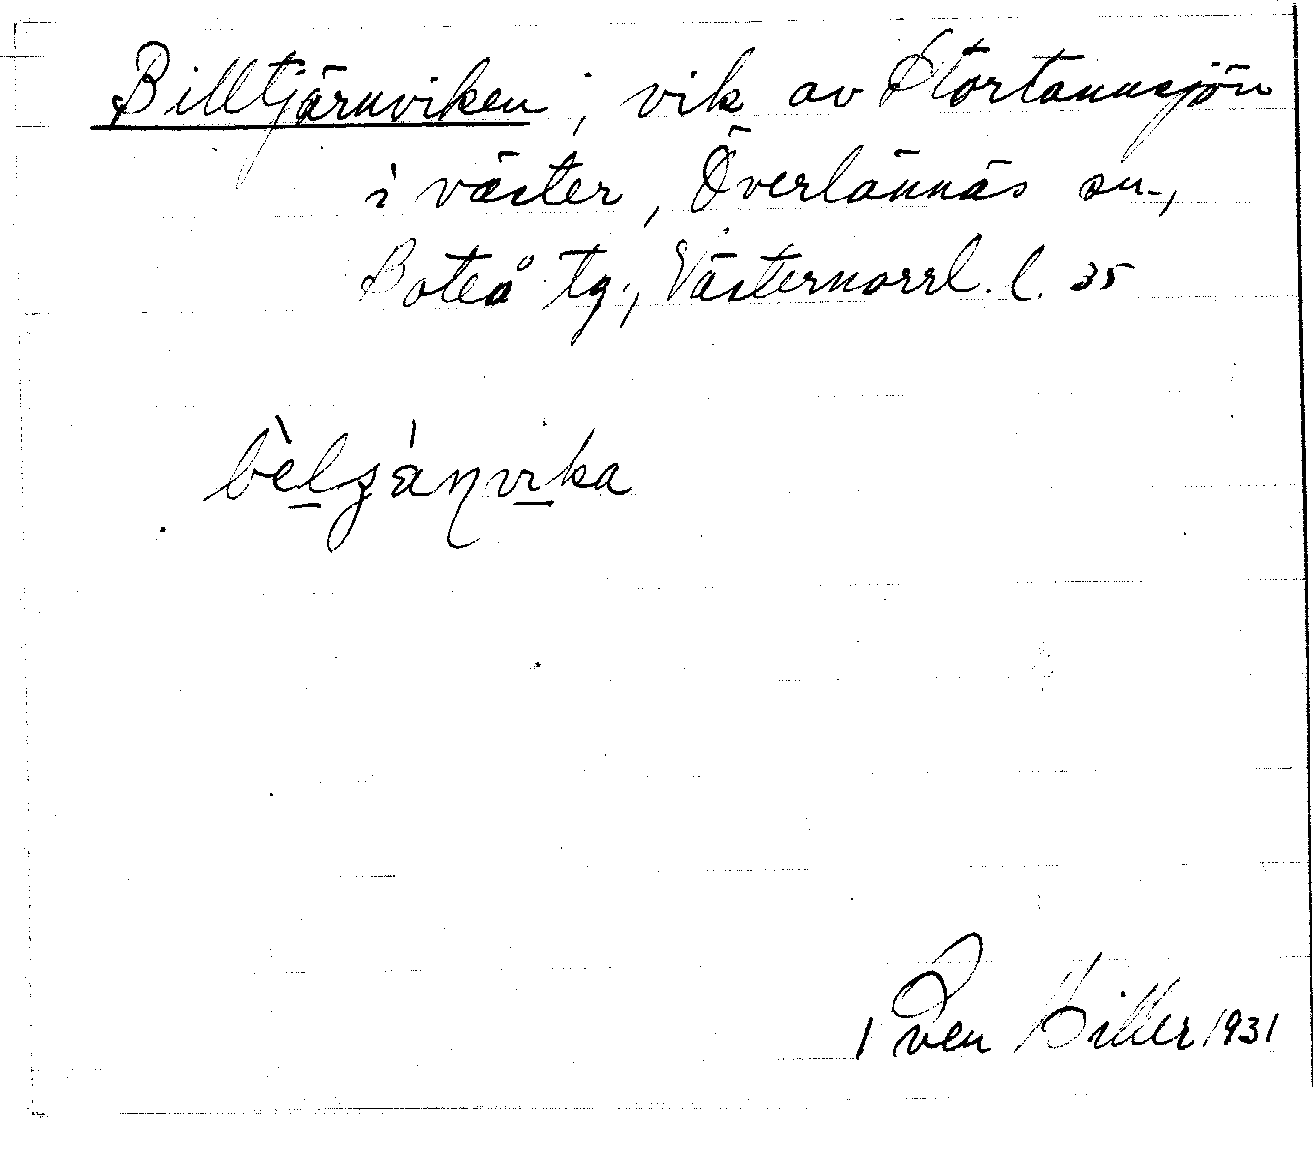 Billtjärnviken, vik av Stortannsjön
i väster, Överlännäs sn.,
Boteå tg., Västernorrl. l. 35
bèlʒánvika
Sven Hiller 1931